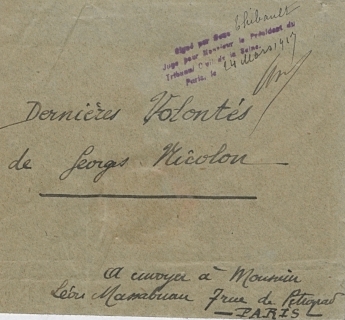 Signé par Nous Thibault
Juge pour Monsieur le Président du
Tribunal Civil de la Seine.
Paris, le 24 Mars 1917
Dernières Volontés
de Georges Nicolon
A envoyer à Monsieur
Léon 7 rue de Pétrograd
PARIS